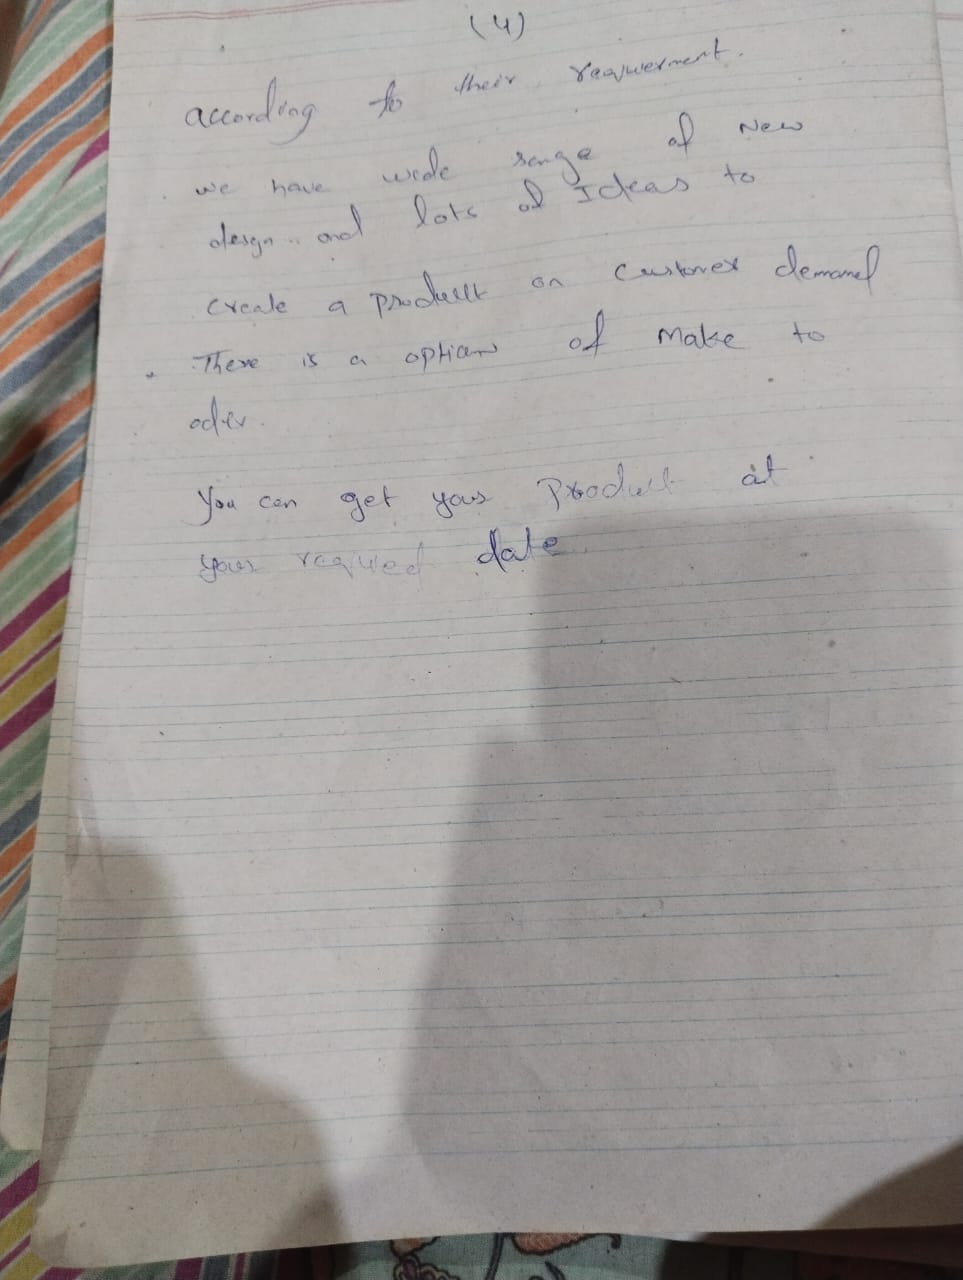 (4)
according to their requirement.
we have wide range of New
design and lots of Ideas to
create a product on customer demand
There is a option of Make to
oder.
You can get your Product at
your required date